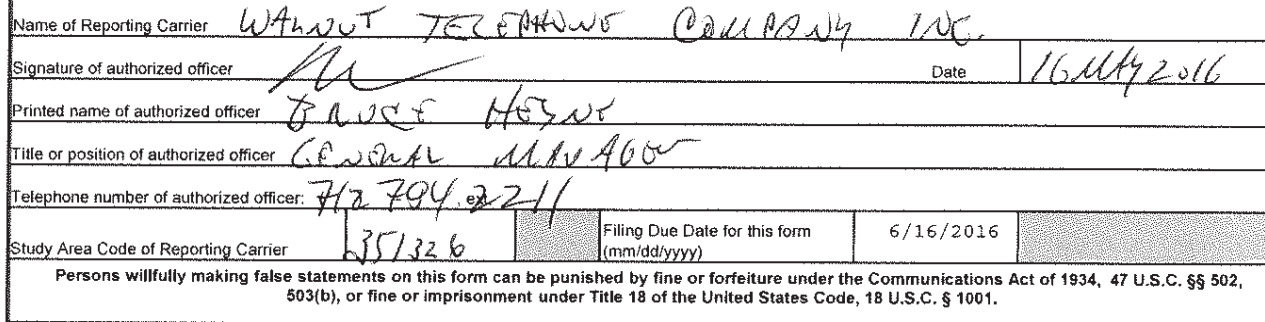 Name of Reporting Carrier WALNUT TELEPHONE COMPANY INC.
Signature of authorized officer Date 16 MAY 2016
Printed name of authorized officer BRUCE HEYNE
Title or position of authorized officer GENERAL MANAGER
Telephone number of authorized officer: 712 794 ext 2211
Study Area Code of Reporting Carrier 351326 Filing Due Date for this form 6/16/2016
(mm/dd/yyyy)
Persons willfully making false statements on this form can be punished by fine or forfeiture under the Communications Act of 1934, 47 U.S.C. §§ 502,
503(b), or fine or imprisonment under Title 18 of the United States Code, 18 U.S.C. § 1001.